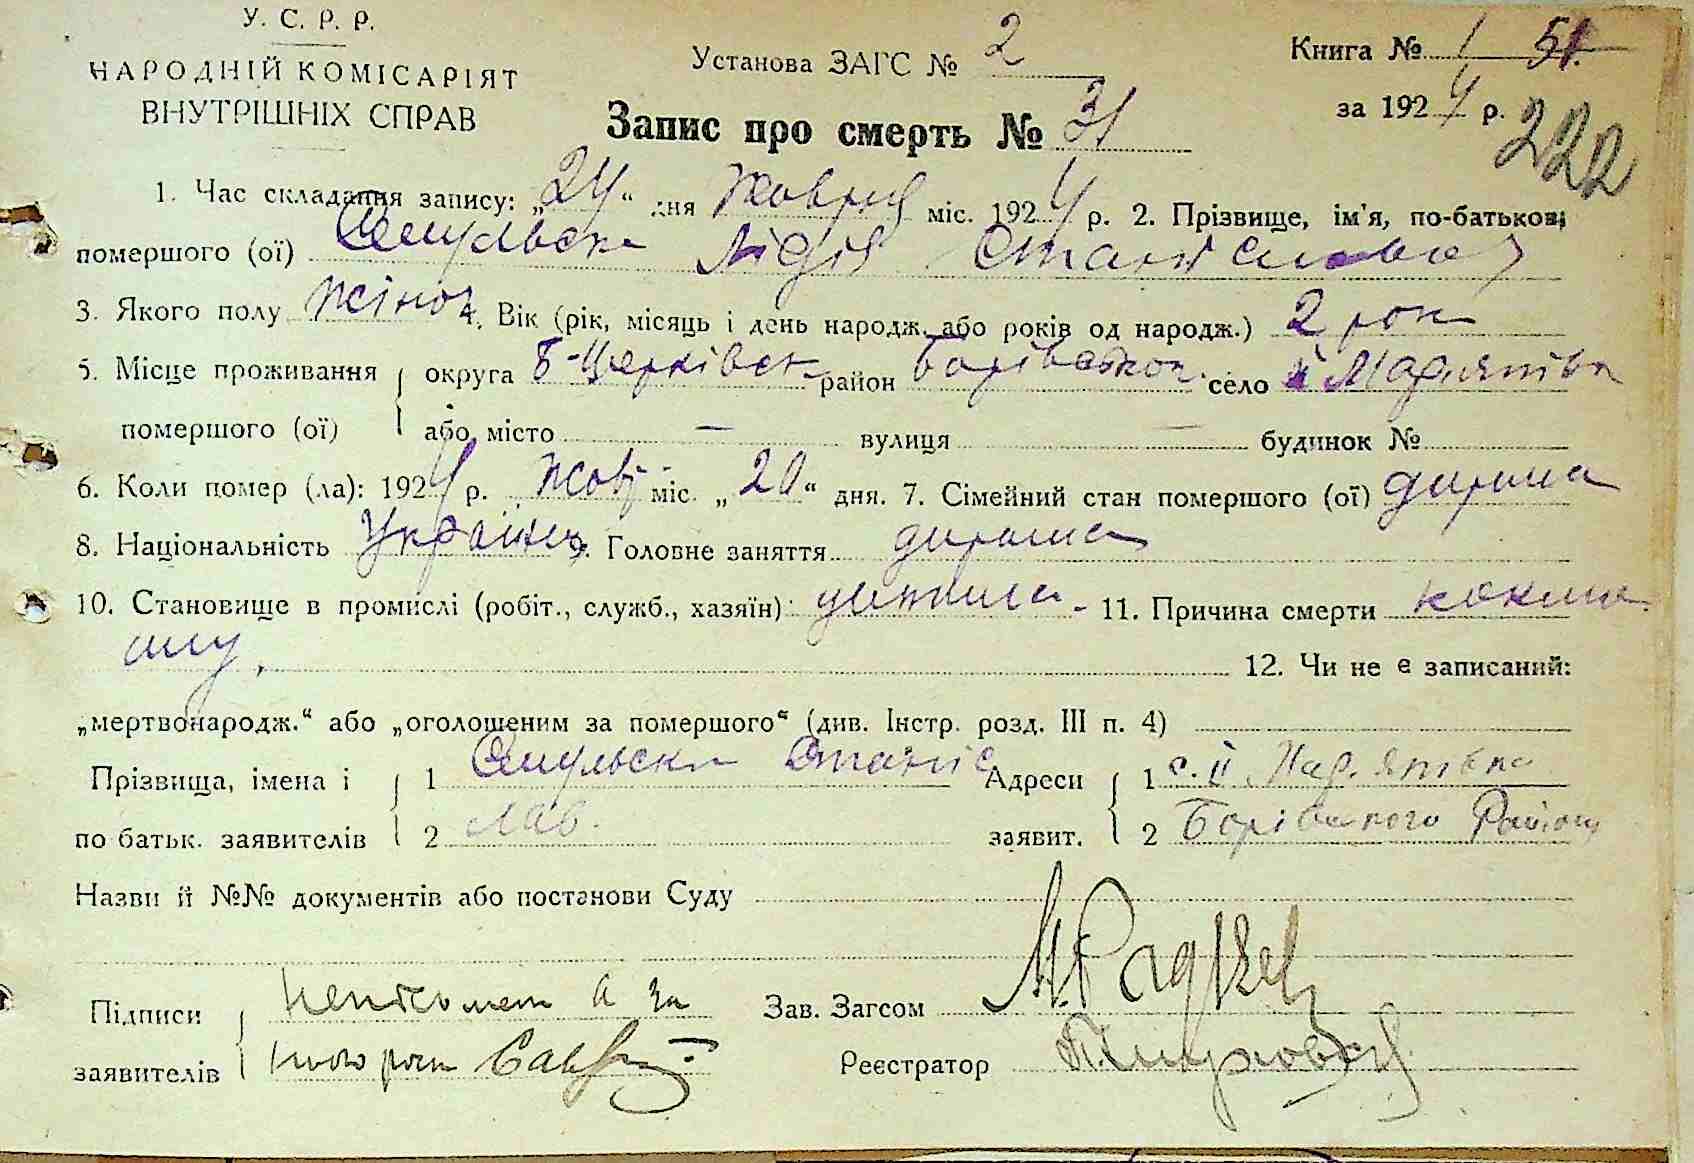 У. С. Р. Р.
НАРОДНІЙ КОМІСАРІЯТ
ВНУТРІШНІХ СПРАВ
Установа ЗАГС № 2
Книга № 1 51.
за 1924 р.
222
Запис про смерть № 31
1. Час складання запису: „24“ дня Жовтня міс. 1924 р. 2. Прізвище, ім'я, по-батькові
помершого (ої) Лідія Станіславов
3. Якого полу жіноч 4. Вік (рік, місяць і день народж. або років од народж.) 2 рок
5. Місце проживання округа Б-Церківськ район село ІІ Мар'янівка
помершого (ої) або місто — вулиця — будинок №
6. Коли помер (ла): 1924 р. Жовт міс. „20“ дня. 7. Сімейний стан помершого (ої) дитина
8. Національність Україн 9. Головне заняття дитина
10. Становище в промислі (робіт., служб., хазяїн) дитина - 11. Причина смерти коклю
шу.
12. Чи не є записаний:
„мертвонародж.“ або „оголошеним за помершого“ (див. Інстр. розд. III п. 4)
Прізвища, імена і 1 Станіс Адреси 1 с. ІІ Мар'янівка
по батьк. заявителів 2 лав. заявит. 2 Району
Назви й №№ документів або постанови Суду
Підписи неписьмен а за Зав. Загсом
заявителів нього росп Реєстратор